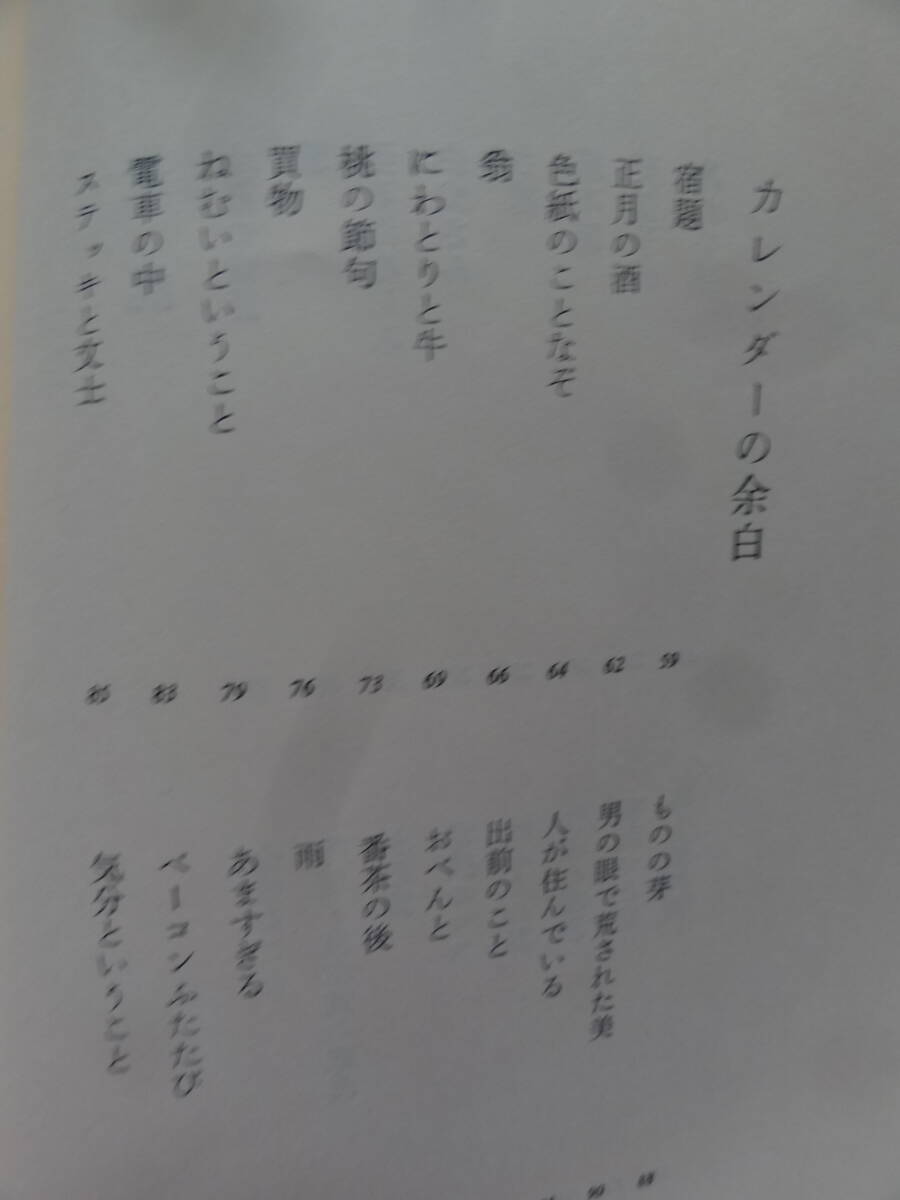 カレンダーの余白
宿題 59
正月の酒 62
色紙のことなぞ 64
翁 66
にわとりと牛 69
桃の節句 73
買物 76
ねむいということ 79
電車の中 83
ステッキと文士 85
ものの芽 88
男の眼で荒された美 90
人が住んでいる
出前のこと
おべんと
番茶の後
雨
あますぎる
ベーコンふたたび
気分ということ